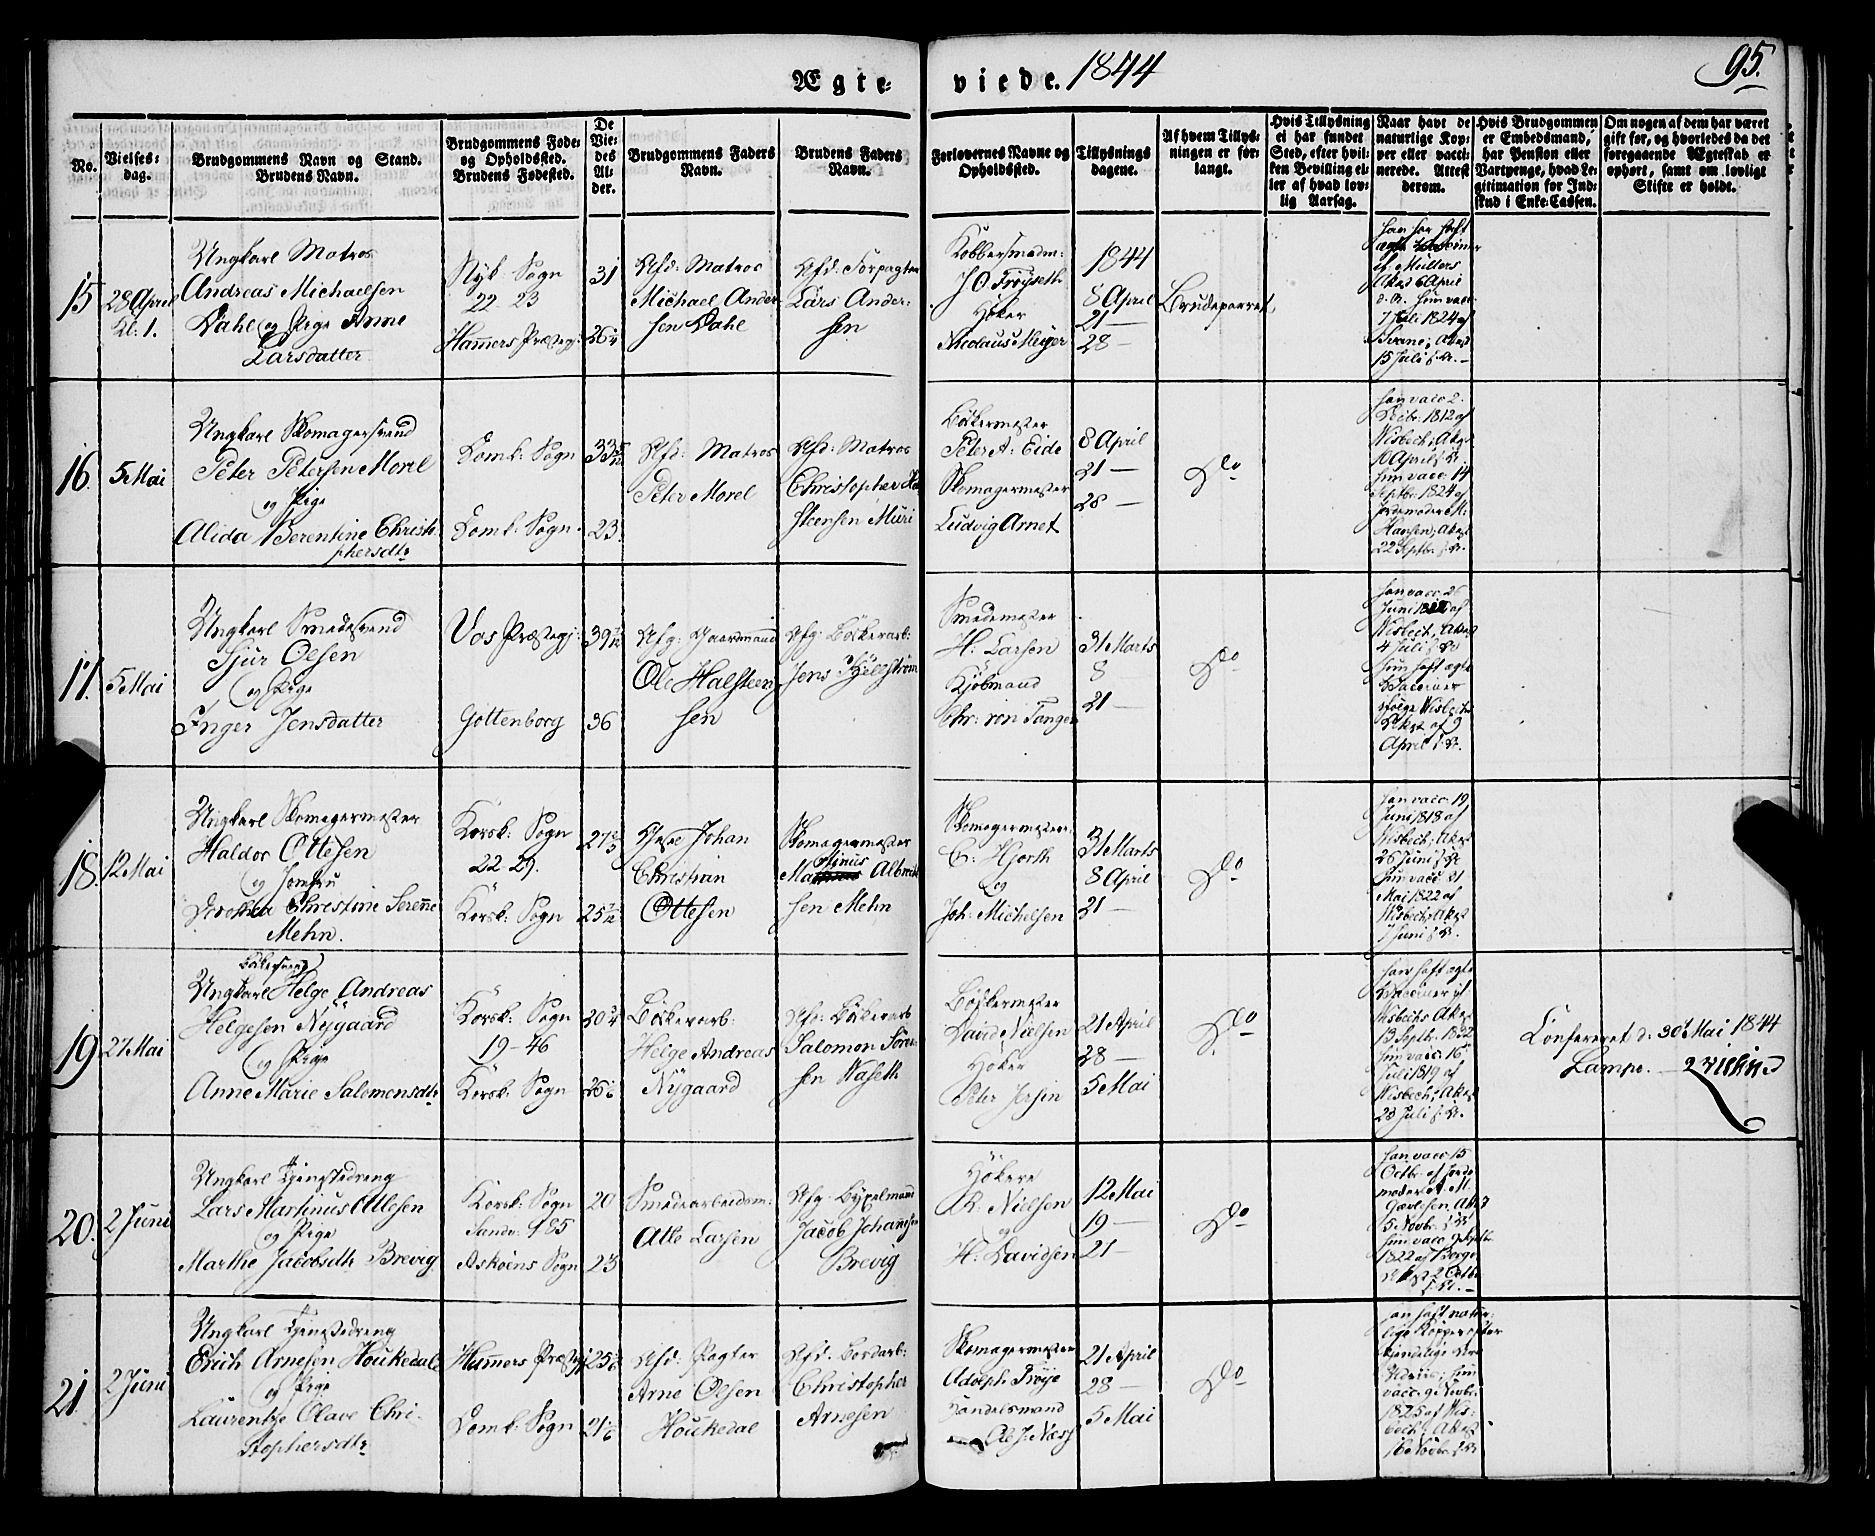 Ægte-
viede. 1844
95.
No.
Vielses-
dag.
Brudgommens Navn og Stand.
Brudens Navn.
Brudgommens Føde-
og Opholdssted.
Brudens Fødested.
De
Vie-
des
Al-
der.
Brudgommens Faders
Navn.
Brudens Faders
Navn.
Forlovernes Navne og
Opholdssted.
Tillysnings
dagene.
Af hvem Tillys-
ningen er for-
langt.
Hvis Tillysning
ei har fundet
Sted, efter hvil-
ken Bevilling el-
ler af hvad lov-
lig Aarsag.
Naar havt de
naturlige Kop-
per eller vacci-
nerede. Attest
derom.
Hvis Brudgommen
er Embedsmand,
har Pension eller
Vartpenge, hvad Le-
gitimation for Ind-
skud i Enke-Cassen.
Om nogen af dem har været
gift før, og hvorledes da det
foregaaende Ægteskab er
ophørt, samt om lovligt
Skifte er holdt.
15
28 April
Kl. 1.
Ungkarl Matros
Andreas Michaelsen
Dahl og Pige Anne
Larsdatter
Nyk: Sogn
22. 23
Hammers Præstegj:
31
26 1/4
Afd: Matros
Michael Ander-
sen Dahl
Afd: Forpagter
Lars Ander-
sen
Kobbersmedm:
J O Frøyseth
Høker
Nicolaus Meyer
1844
8 April
21 —
28 —
Brudeparret
7 Juli 1824 af
15 Juli s: A. —
16.
5 Mai
Ungkarl Skomagersvend
Peter Petersen Morel
og Pige
Alida Berentine Christo-
phersdtr
Domk: Sogn
Domk: Sogn.
33 5/12
23
Afd: Matros
Peter Morel
Afd: Matros
Christopher
Steensen Müri
Bødkermester
Peter A: Eide
Skomagermester
Ludvig Arnet
8 April
21 —
28 —
Do
han vacc 2.
Decbr. 1812 af
Wisbech, Attest
16 April s: A.
hun vacc. 14
Septbr. 1824 af
Jordemoder M.
Hansen, Attest
22 Septbr. s: A.
17.
5 Mai
Ungkarl Smedesvend
Sjur Olsen
og Pige
Inger Jensdatter
Vos Præstegj:
Gottenborg
39
36
Afg: Gaardmand
Ole Halsteen-
sen
Afg: Bødkerarb:
Jens Kjellstrøm
Smedemester
H: Larsen
Kjøbmand
Chr: von Tangen
31 Marts
8
21 —
Do
han vacc. 26
Juni af
Wisbech, Attest
4 Juli s: A.
hun haft ægte
Vacciner
ifølge Wisbechs
Attest af 9
April s: A.
18.
12 Mai
Ungkarl Skomagermester
Haldor Ottesen
og Jomfru
Dorothea Christine Serenne
Mehn.
Korsk: Sogn
22. 29.
Korsk: Sogn
27
25
Johan
Christian
Ottesen
Skomagermester
Martinus Albrect-
sen Mehn
Skomagermestere
C: Hjorth
og
Joh: Michelsen
31 Marts
8 April
21 —
Do
han vacc 19
Juni 1818 af
Wisbech, Attest
26 Juni s: A.
hun vacc 31
Mai 1822 af
Wisbech, Attest
7 Juni s: A.
19
27 Mai
Bødkersvend
Ungkarl Helge Andreas
Helgesen Nygaard
og Pige
Anne Marie Salomonsdtr
Korsk: Sogn
19-46
Korsk: Sogn
20 3/4
26 1/6
Bødkerarb:
Helge Andreas
Nygaard
Afd: Bødkerarb
Salomon Søren-
sen Waseth
Bødkermester
David Nielsen
Høker
Peter Jersin
21 April
28 —
5 Mai
Do
han haft ægte
Vacciner if
Wisbechs Attest
13 Septbr. 1832
hun vacc. 16
Juli 1819 af
Wisbech, Attest
23 Juli s: A.
Confereret d: 30 Mai 1844
Lampe.
20.
2 Juni
Ungkarl Tjenestedreng
Lars Martinus Atlesen
og Pige
Marthe Jacobsdtr Brevig
Korsk: Sogn
Sandv.
Askøens Sogn
20
23
Smedearbeidsm:
Atle Larsen
Afg:
Jacob Johannesen
Brevig
Høkere
R. Nielsen
og
H: Davidsen
12 Mai
19 —
21 —
Do
han vacc. 15
Octbr. af Jorde-
moder
5 Novbr. s: A.
hun vacc 9 Septbr.
1822 af
Attest 2 Octbr.
s: A. —
21
2 Juni
Ungkarl Tjenestedreng
Erich Arnesen Houkedal
og Pige
Laurentze Olave Chri-
stophersdtr
Hammers Præstegj
Domk: Sogn
25 1/6
21 1/6
Afd:
Arne Olsen
Houkedal
Afd. Bordarb:
Christopher
Arnesen
Skomagermester
Adolph Frøye
Handelsmand
Ole J: Næss
21 April
28 —
5 Mai
Do
han haft natur-
lige Kopper efter
hun
vacc. 9 Novbr.
1825 af Wis-
bech, Attest
16 Novbr. s: A.